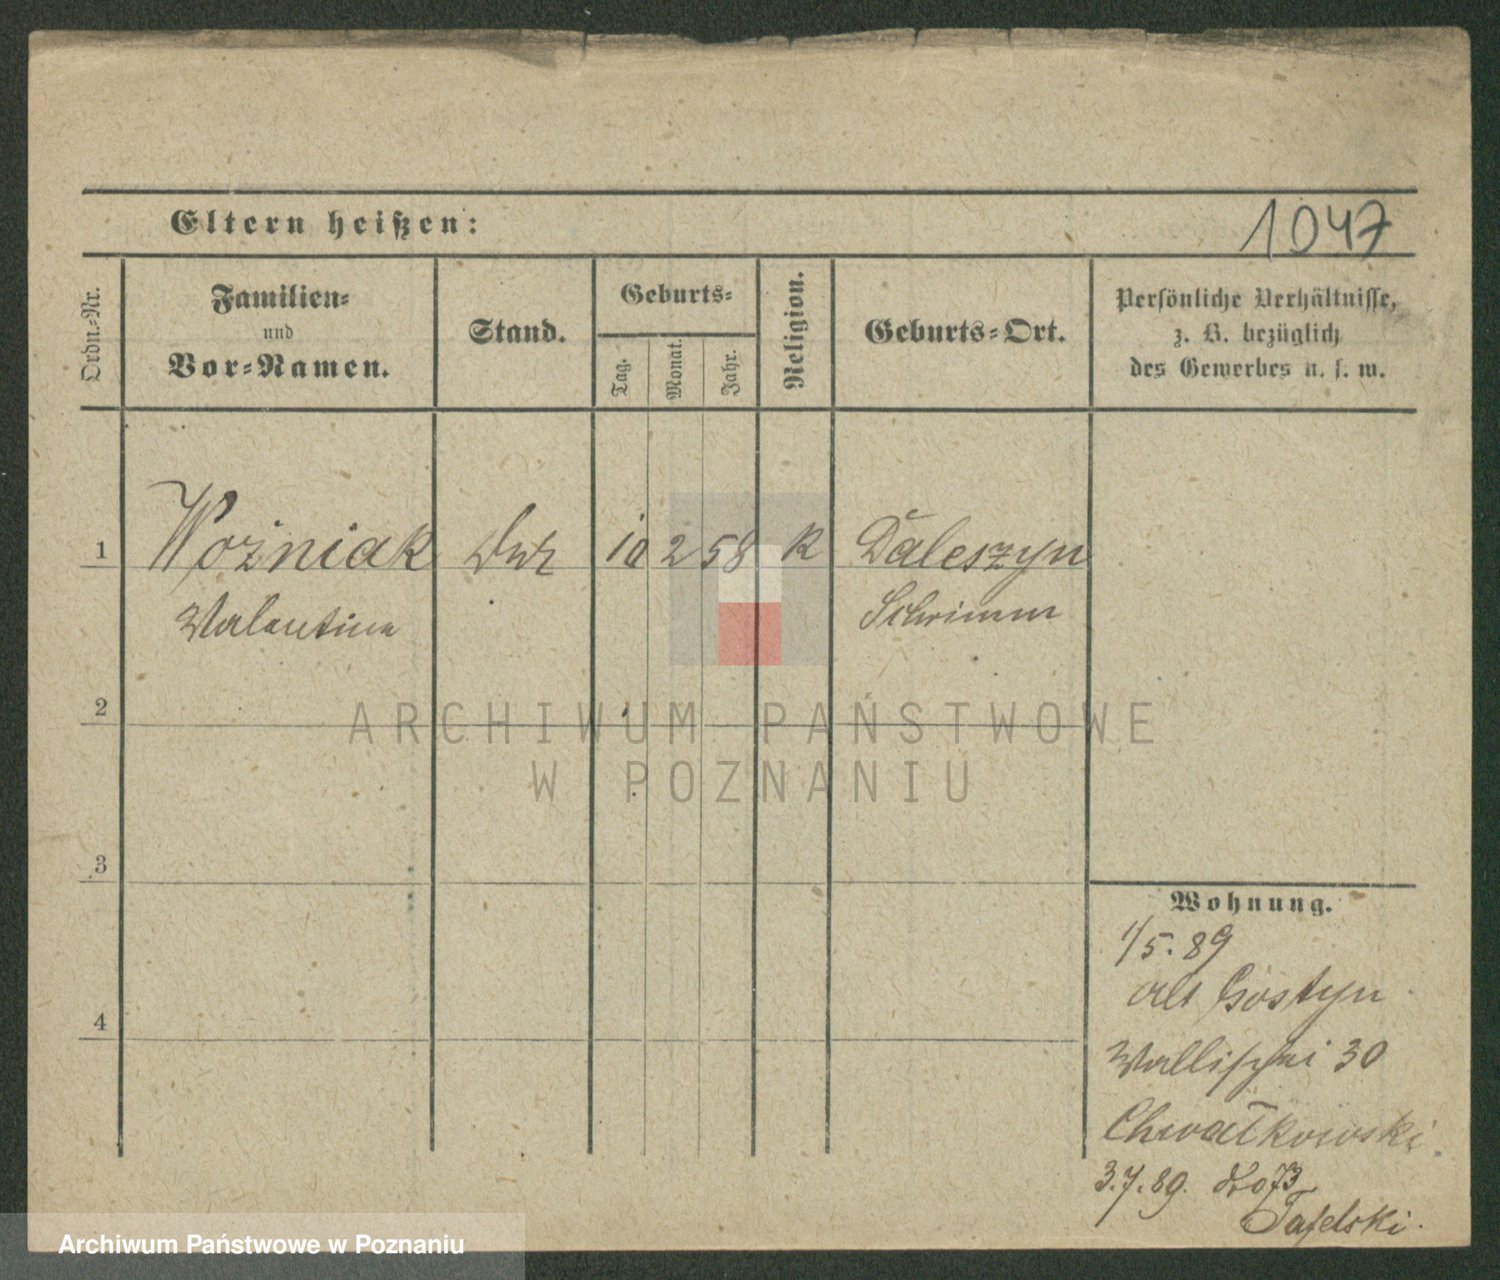 Eltern heißen:
1047
Ordn.-Nr.
Familien-
und
Vor-Namen.
Stand.
Geburts-
Tag.
Monat.
Jahr.
Religion.
Geburts-Ort.
Persönliche Verhältnisse,
z. B. bezüglich
des Gewerbes u. s. w.
1 Woźniak 10 2 58 K Daleszyn
Valentine Schrimm
2
3
4
Wohnung.
1/5.89
Gostyn
Wallischei 30
Chwałkowski
3.7.89. do 73
Tafelski.
ARCHIWUM PAŃSTWOWE
W POZNANIU
Archiwum Państwowe w Poznaniu